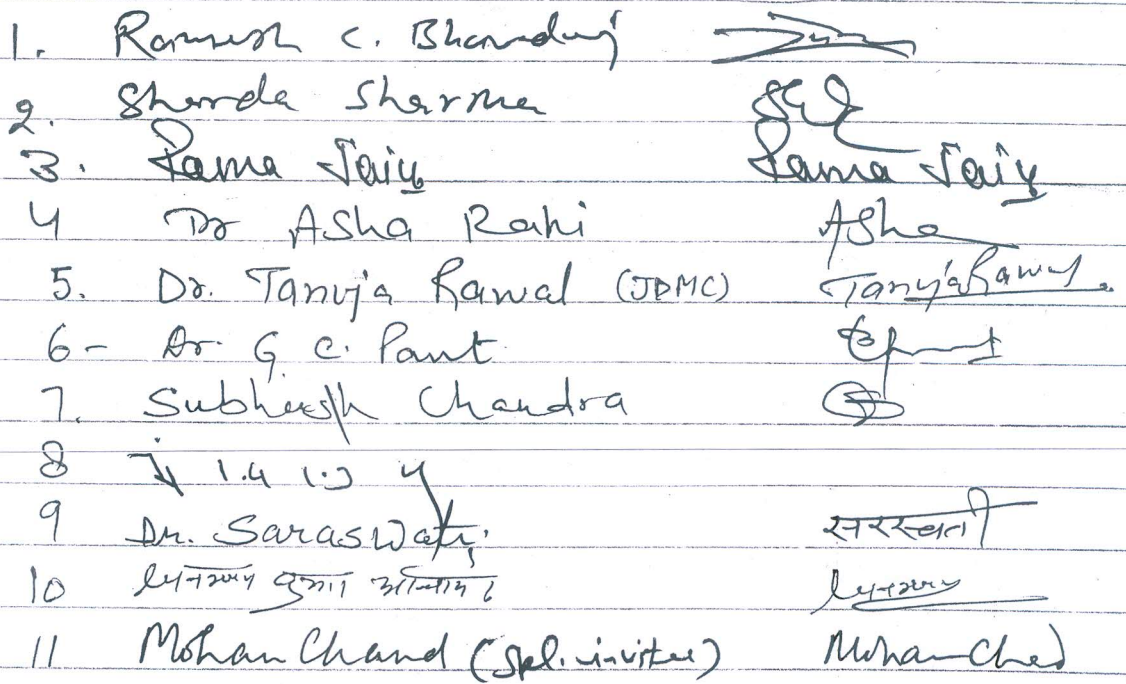 1. Ramesh C. Bhardwaj
2. Sharda Sharma
3. Rama Jain Rama Jain
4 Dr Asha Rani Asha
5. Dr. Tanuja Rawal (JDMC) Tanuja Rawal.
6- Dr. G. C. Pant
7. Subhash Chandra
8
9 Dr. Saraswati सरस्वती
10 कुमार
11 Mohan Chand (Spl. invitee) Mohan Chand